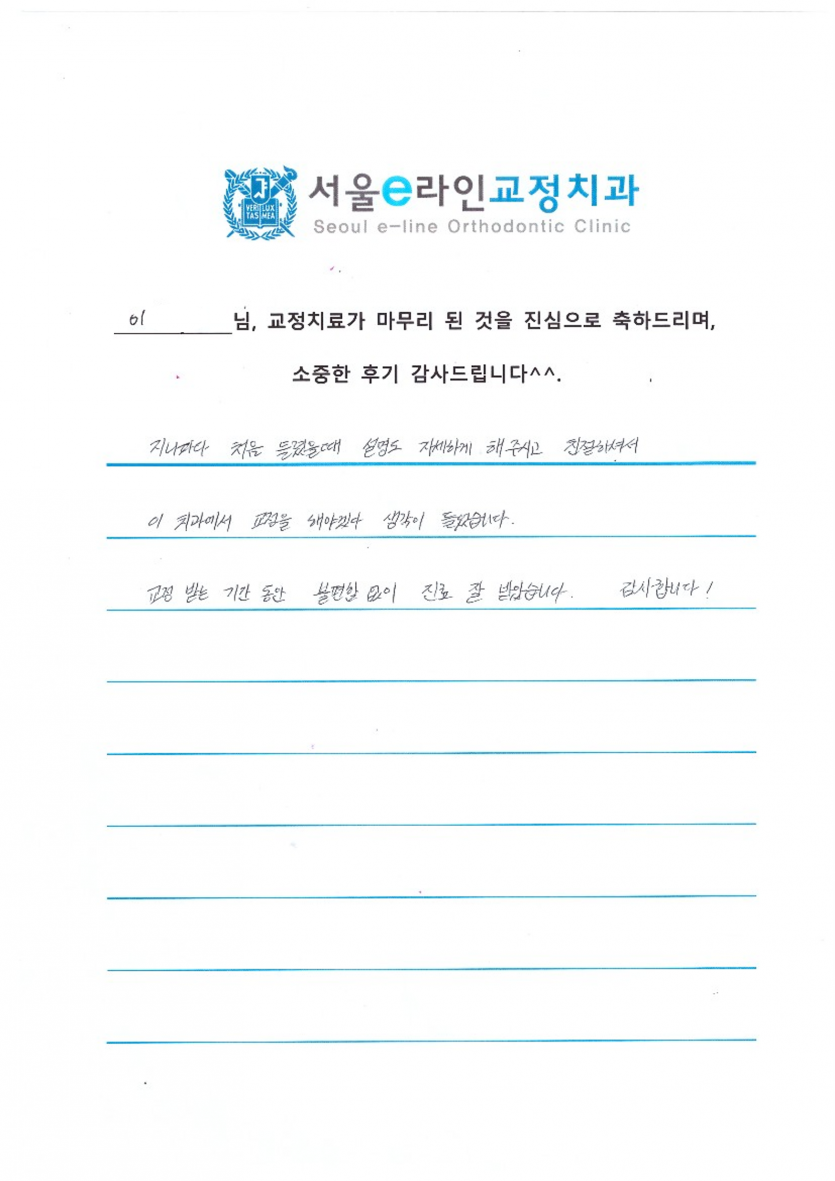 VERI LUX
TAS MEA
서울e라인교정치과
Seoul e-line Orthodontic Clinic
이 님, 교정치료가 마무리 된 것을 진심으로 축하드리며,
소중한 후기 감사드립니다^^.
지나가다 처음 들렸을때 설명도 자세하게 해주시고 친절하셔서
이 치과에서 교정을 해야겠다 생각이 들었습니다.
교정 받는 기간 동안 불편함 없이 진료 잘 받았습니다. 감사합니다!